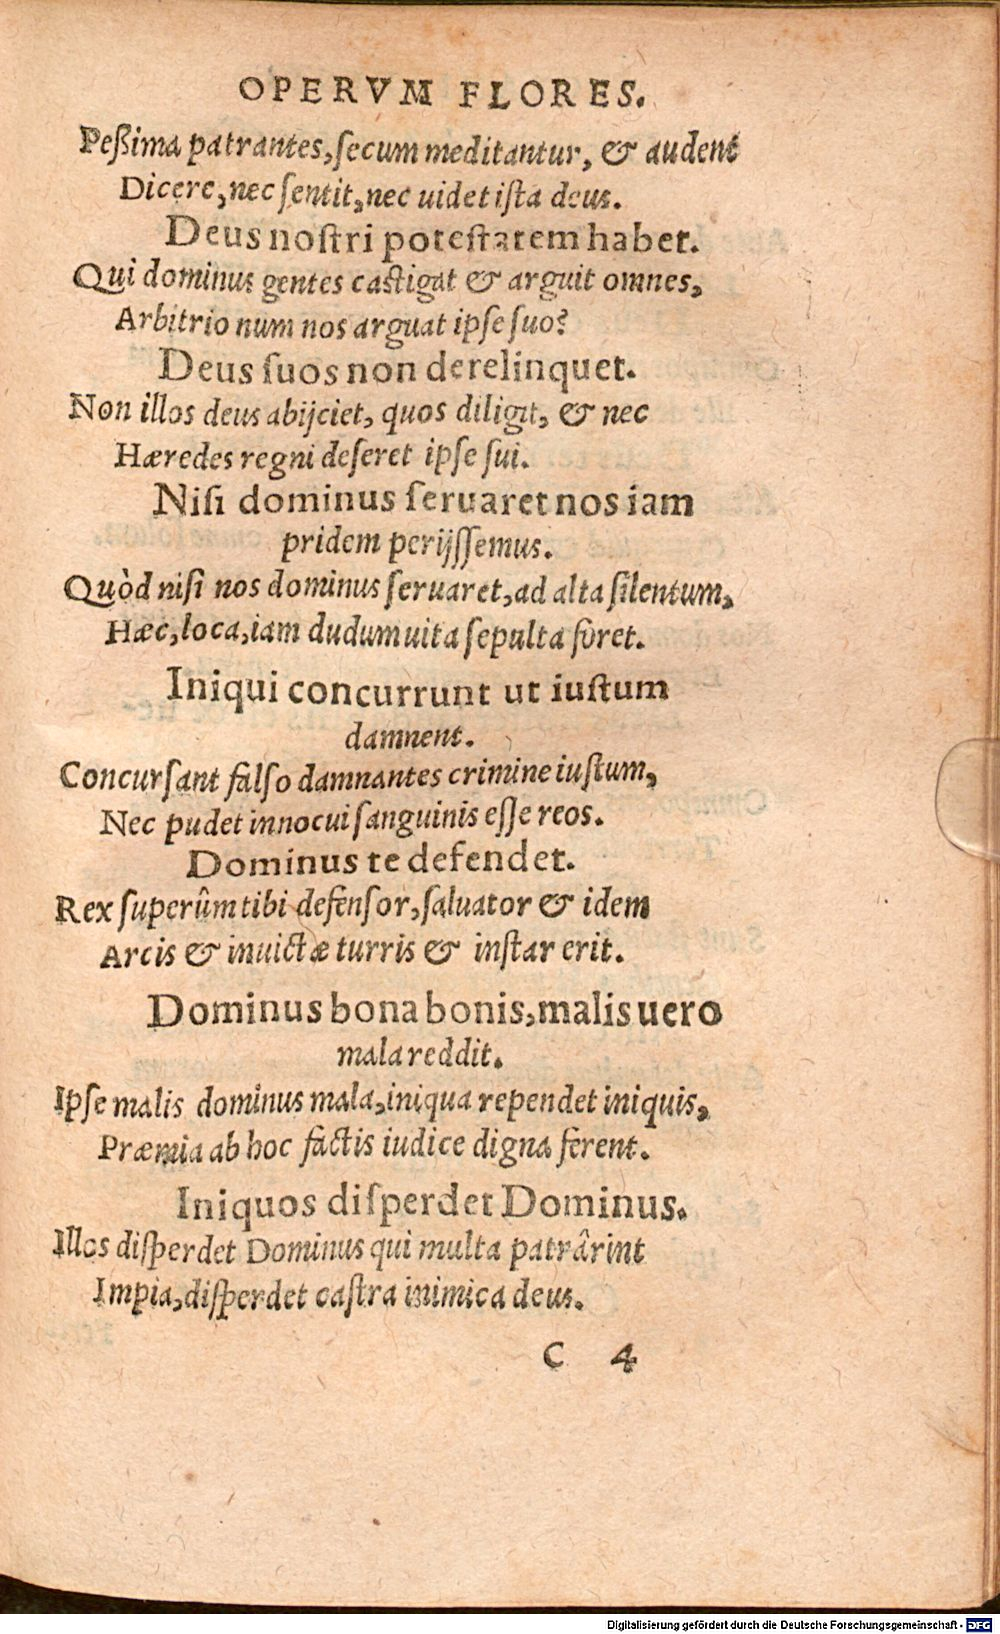 OPERVM FLORES.
Peßima patrantes, ſecum meditantur, & audent
Dicere, nec ſentit, nec uidet iſta deus.
Deus noſtri poteſtatem habet.
Qui dominus gentes caſtigat & arguit omnes,
Arbitrio num nos arguat ipſe ſuo?
Deus ſuos non derelinquet.
Non illos deus abijciet, quos diligit, & nec
Hæredes regni deſeret ipſe ſui.
Niſi dominus ſeruaret nos iam
pridem perijſſemus.
Quòd niſi nos dominus ſeruaret, ad alta ſilentum,
Hæc, loca, iam dudum uita ſepulta foret.
Iniqui concurrunt ut iuſtum
damnent.
Concurſant falſo damnantes crimine iuſtum,
Nec pudet innocui ſanguinis eſſe reos.
Dominus te defendet.
Rex ſuperûm tibi defenſor, ſaluator & idem
Arcis & inuictæ turris & inſtar erit.
Dominus bona bonis, malis uero
mala reddit.
Ipſe malis dominus mala, iniqua rependet iniquis,
Præmia ab hoc factis iudice digna ferent.
Iniquos diſperdet Dominus.
Illos diſperdet Dominus qui multa patrârint
Impia, diſperdet caſtra inimica deus.
C 4
Digitalisierung gefördert durch die Deutsche Forschungsgemeinschaft - DFG